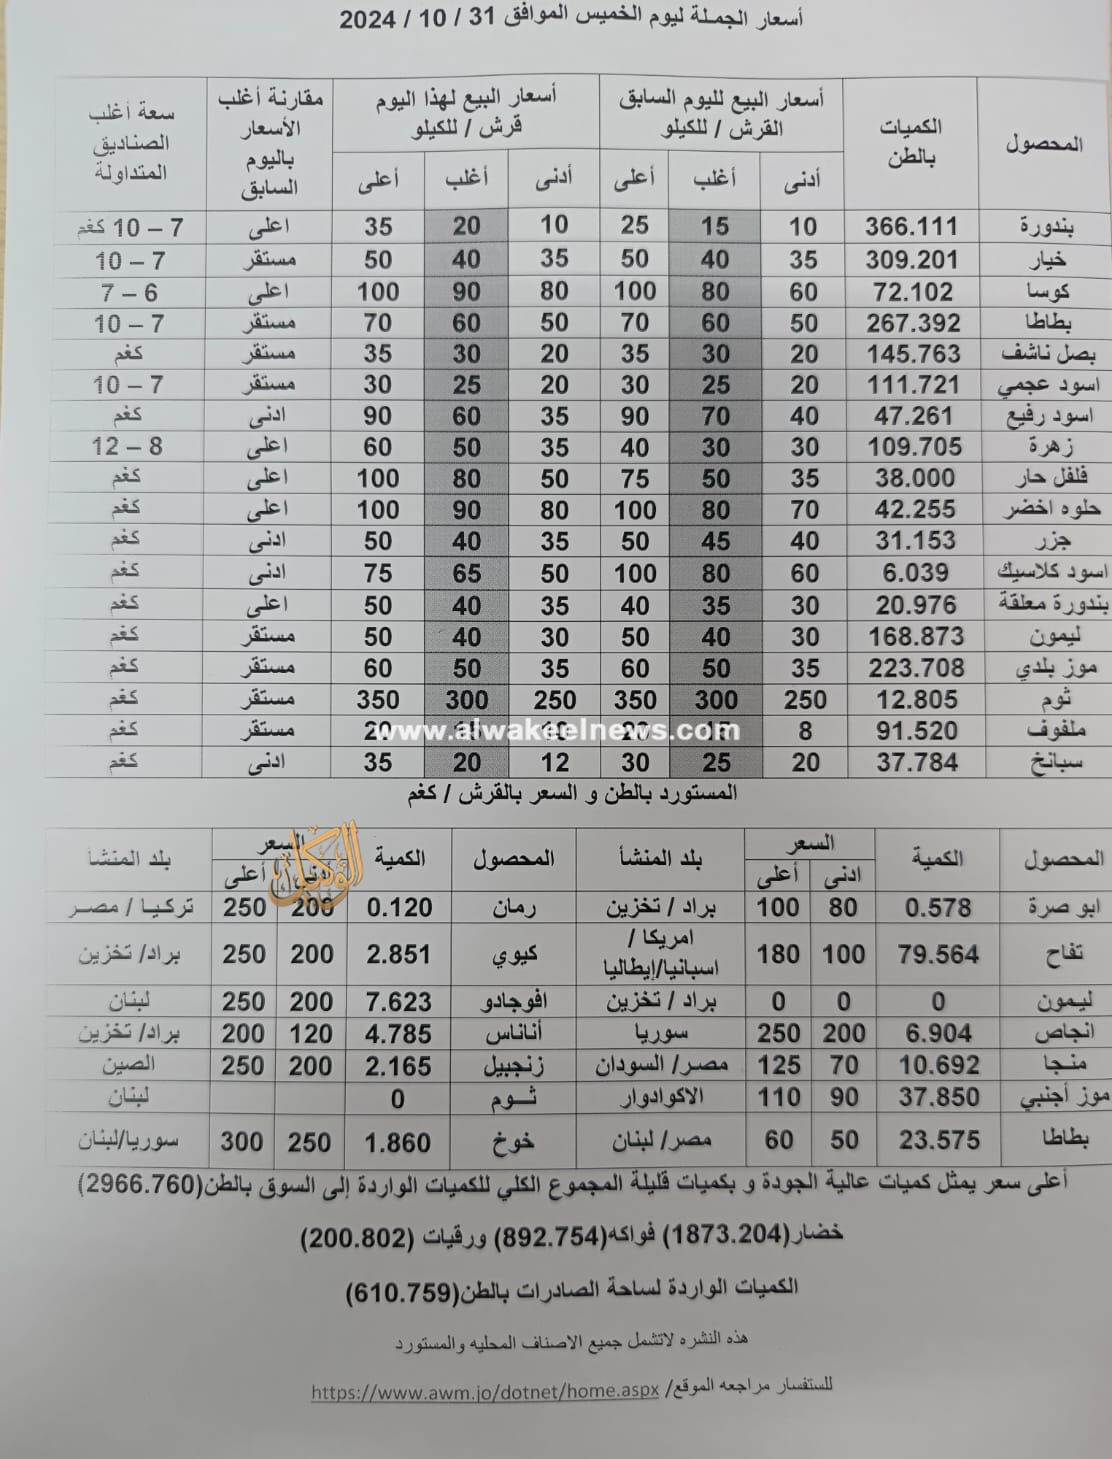 أسعار الجملة ليوم الخميس الموافق 31 / 10 / 2024
المحصول الكميات بالطن أسعار البيع لليوم السابق القرش / للكيلو أسعار البيع لهذا اليوم قرش / للكيلو مقارنة أغلب الأسعار باليوم السابق سعة أغلب الصناديق المتداولة
أدنى أغلب أعلى أدنى أغلب أعلى
بندورة 366.111 10 15 25 10 20 35 اعلى 7 – 10 كغم
خيار 309.201 35 40 50 35 40 50 مستقر 7 – 10
كوسا 72.102 60 80 100 80 90 100 اعلى 6 – 7
بطاطا 267.392 50 60 70 50 60 70 مستقر 7 – 10
بصل ناشف 145.763 20 30 35 20 30 35 مستقر كغم
اسود عجمي 111.721 20 25 30 20 25 30 مستقر 7 – 10
اسود رفيع 47.261 40 70 90 35 60 90 ادنى كغم
زهرة 109.705 30 30 40 35 50 60 اعلى 8 – 12
فلفل حار 38.000 35 50 75 50 80 100 اعلى كغم
حلوه اخضر 42.255 70 80 100 80 90 100 اعلى كغم
جزر 31.153 40 45 50 35 40 50 ادنى كغم
اسود كلاسيك 6.039 60 80 100 50 65 75 ادنى كغم
بندورة معلقة 20.976 30 35 40 35 40 50 اعلى كغم
ليمون 168.873 30 40 50 30 40 50 مستقر كغم
موز بلدي 223.708 35 50 60 35 50 60 مستقر كغم
ثوم 12.805 250 300 350 250 300 350 مستقر كغم
ملفوف 91.520 8 15 20 20 مستقر كغم
www.alwakeelnews.com
سبانخ 37.784 20 25 30 12 20 35 ادنى كغم
المستورد بالطن و السعر بالقرش / كغم
المحصول الكمية السعر بلد المنشأ المحصول الكمية السعر بلد المنشأ
ادنى أعلى أدنى أعلى
الوكيل
ابو صرة 0.578 80 100 براد / تخزين رمان 0.120 200 250 تركيا / مصر
تفاح 79.564 100 180 امريكا / اسبانيا/إيطاليا كيوي 2.851 200 250 براد/ تخزين
ليمون 0 0 0 براد / تخزين افوجادو 7.623 200 250 لبنان
انجاص 6.904 200 250 سوريا أناناس 4.785 120 200 براد/ تخزين
منجا 10.692 70 125 مصر/ السودان زنجبيل 2.165 200 250 الصين
موز أجنبي 37.850 90 110 الاكوادوار ثـــوم 0 لبنان
بطاطا 23.575 50 60 مصر/ لبنان خوخ 1.860 250 300 سوريا/لبنان
أعلى سعر يمثل كميات عالية الجودة و بكميات قليلة المجموع الكلي للكميات الواردة إلى السوق بالطن(2966.760)
خضار(1873.204) فواكه(892.754) ورقيات (200.802)
الكميات الواردة لساحة الصادرات بالطن(610.759)
هذه النشره لاتشمل جميع الاصناف المحليه والمستورد
للستفسار مراجعه الموقع/ https://www.awm.jo/dotnet/home.aspx